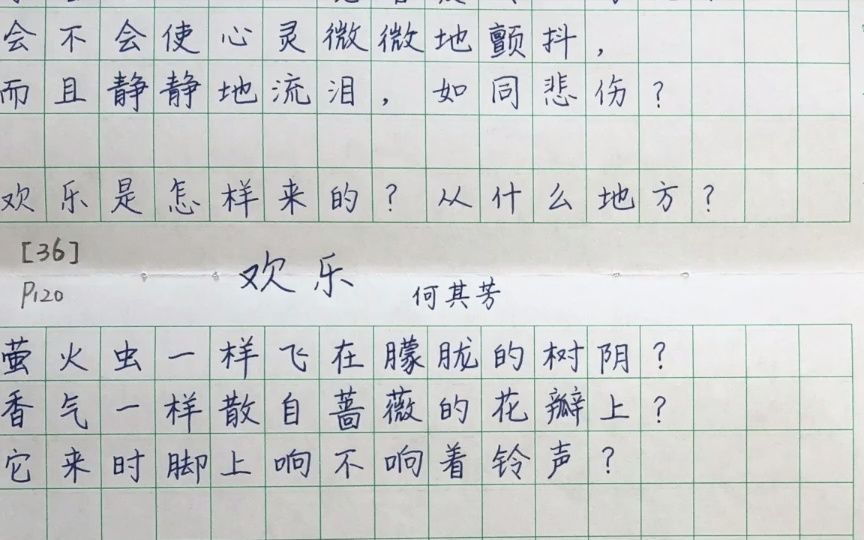 会不会使心灵微微地颤抖，
而且静静地流泪，如同悲伤？
欢乐是怎样来的？从什么地方？
[36]
P120
欢乐
何其芳
萤火虫一样飞在朦胧的树阴？
香气一样散自蔷薇的花瓣上？
它来时脚上响不响着铃声？